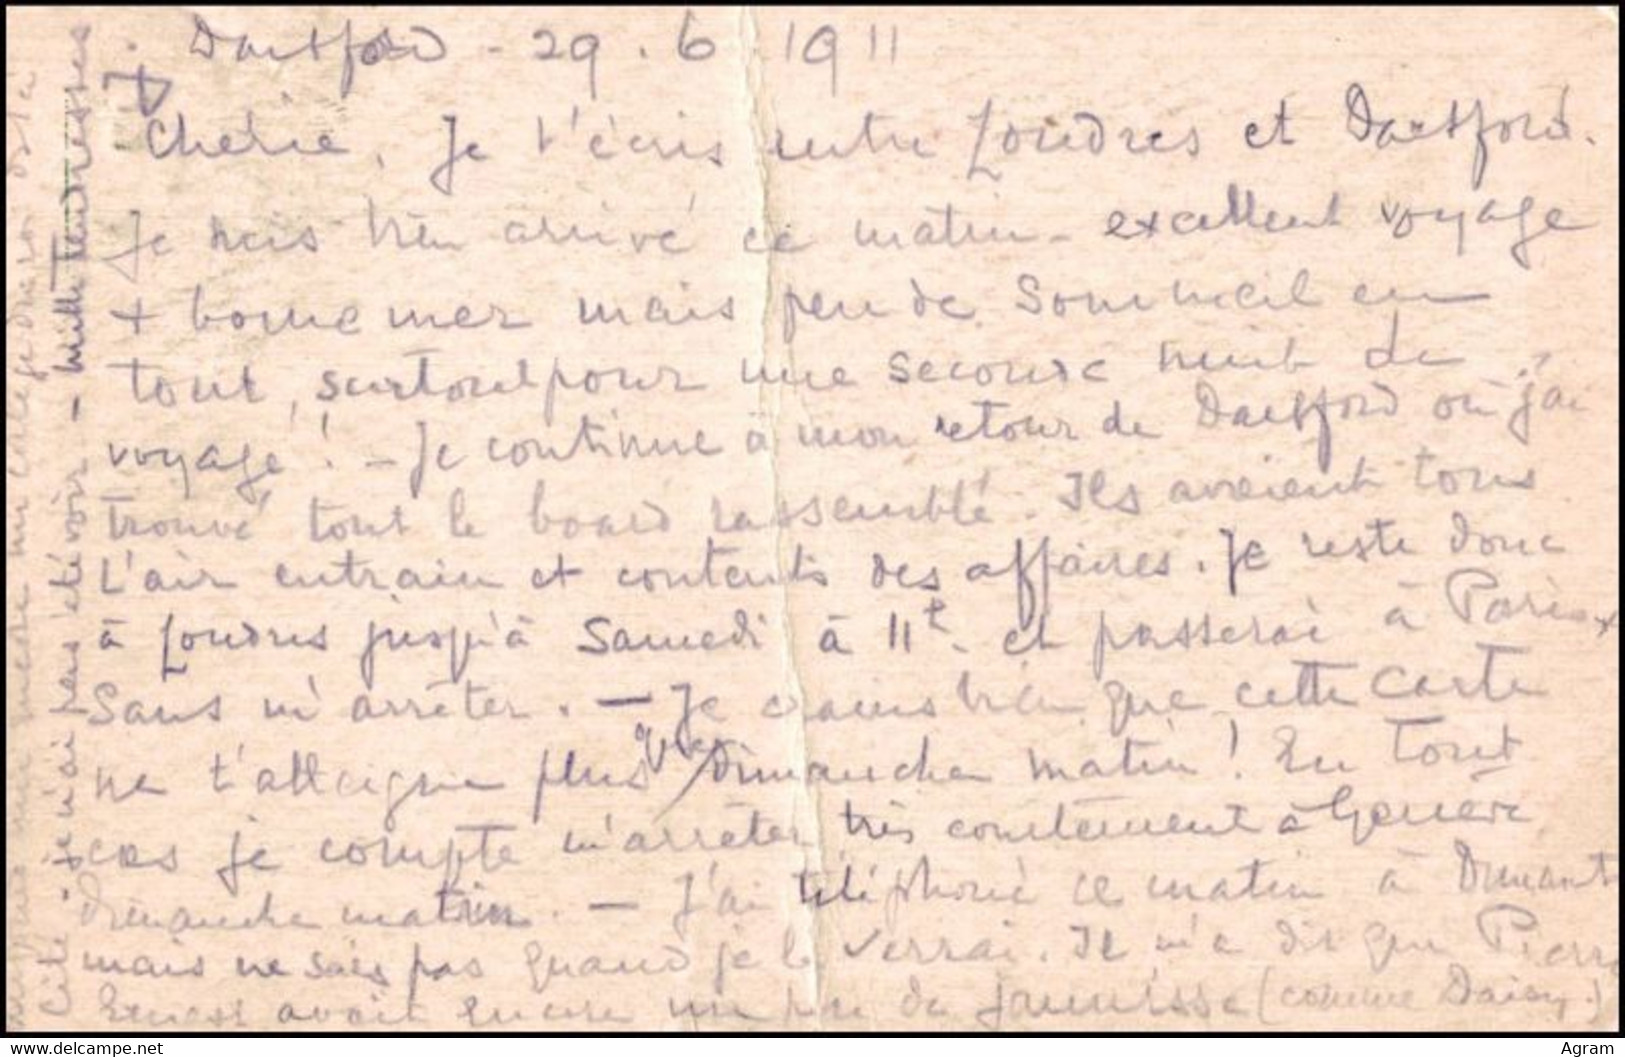 Dartford - 29.6.1911
Chérie, Je t'écris entre Londres et Dartford.
Je suis bien arrivé ce matin - excellent voyage
+ bonne mer mais peu de sommeil en
tout, surtout pour une seconde nuit de
voyage! - Je continue à mon retour de Dartford où j'ai
trouvé tout le board rassemblé. Ils avaient tous
L'air entrain et contents des affaires. Je reste donc
à Londres jusqu'à Samedi à 11h. et passerai à Paris
Sans m'arrêter. - Je crains bien que cette carte
ne t'atteigne plus que Dimanche matin! En Tout
cas je compte m'arrêter très courtement à Genève
Dimanche matin. - J'ai téléphoné ce matin à
mais ne sais pas quand je le verrai. Il m'a dit que Pierre
Ernest avait encore un peu de jaunisse (comme Daisy.)
cité. je n'ai pas été voir - mille tendresses